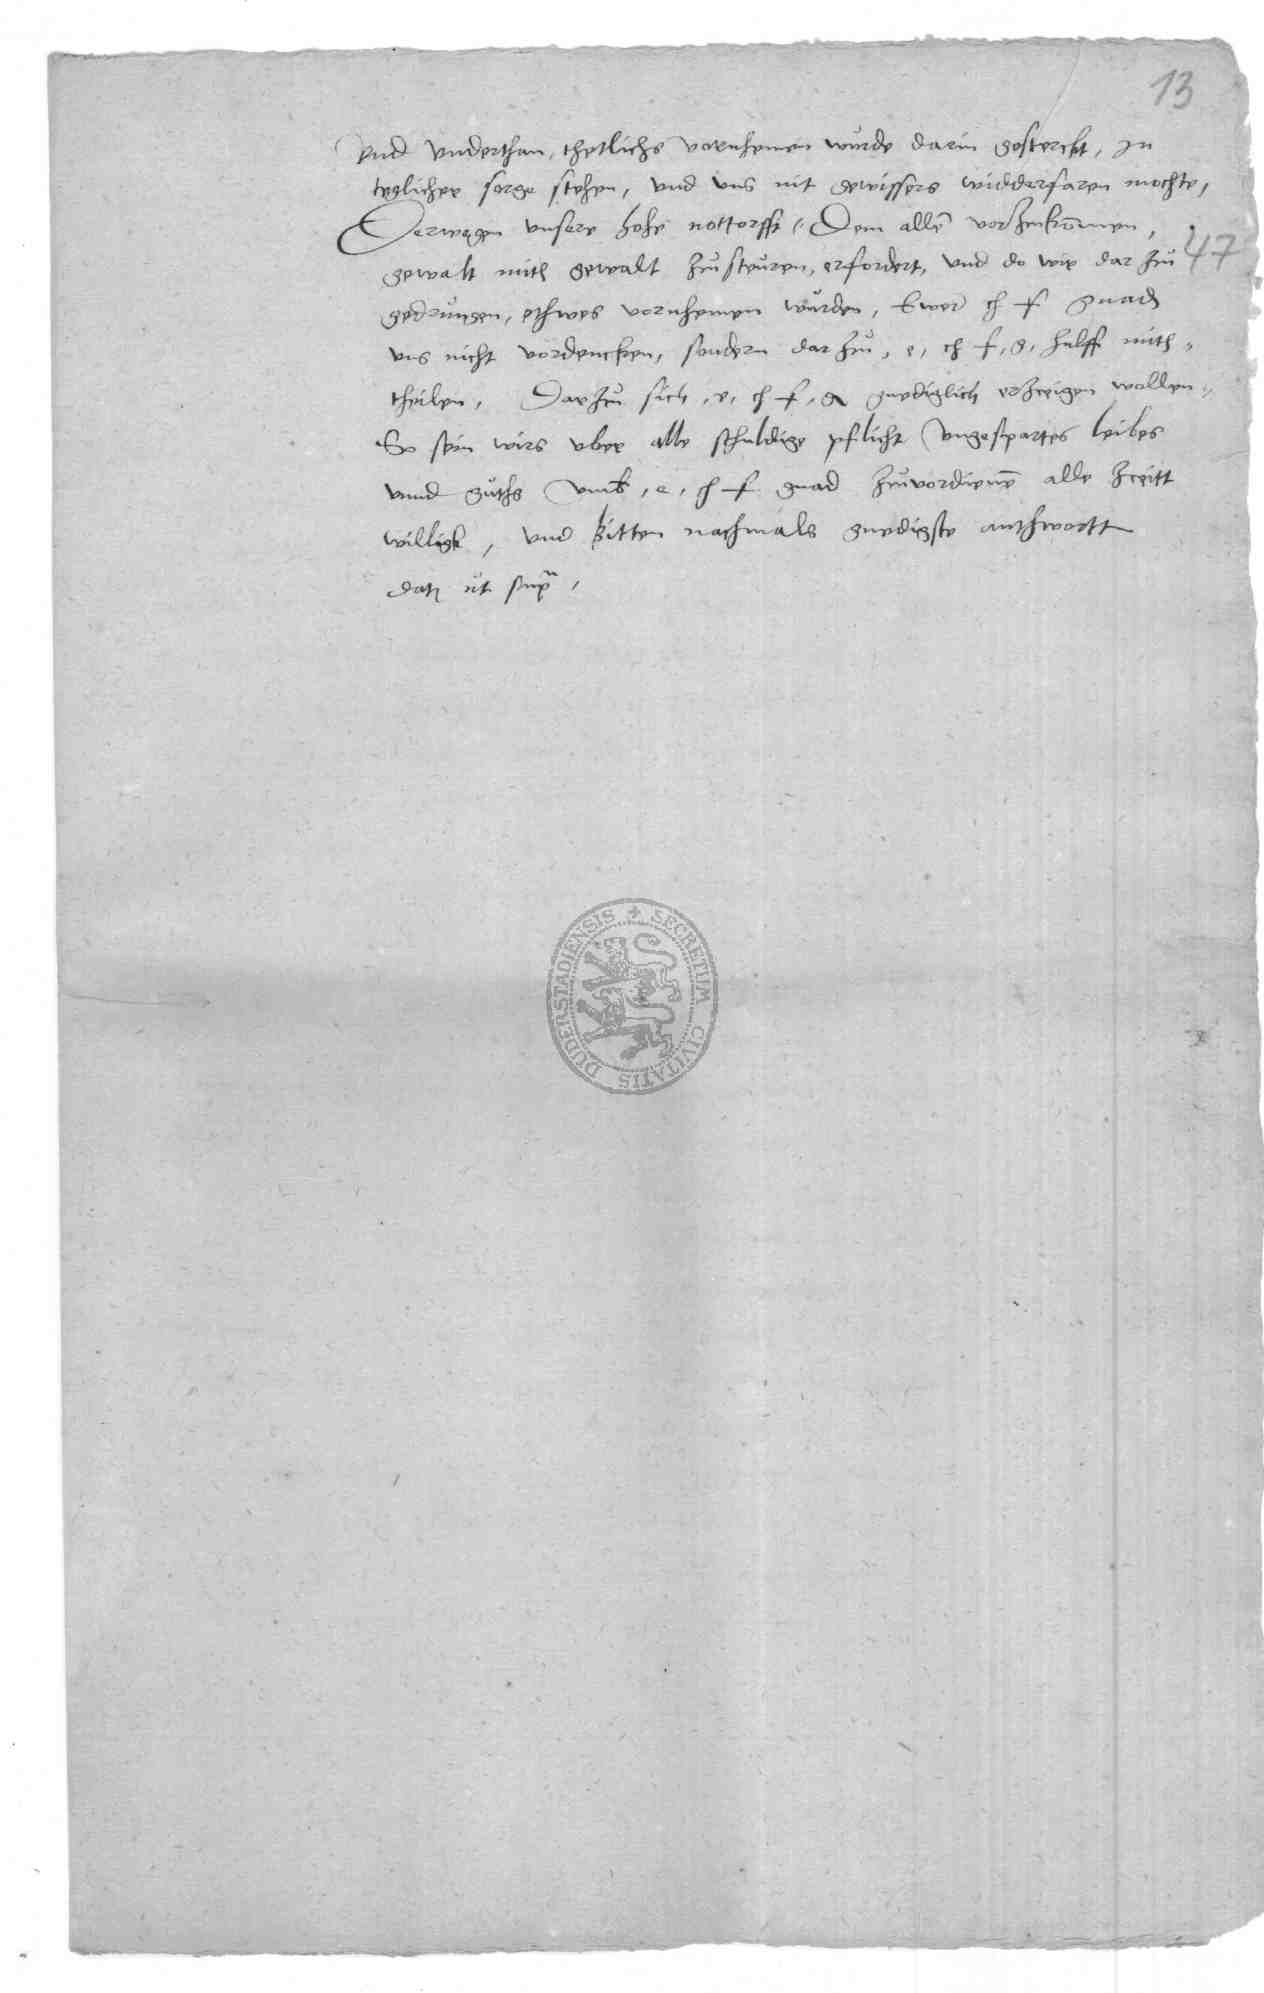 13
vnd vnderthan, thetlichs vornhemen wurde darin gesterckt, In
teglicher sorge stehen, vnd vns nit gewissers widderfaren mochte,
Derwegen vnsere hohe nottorfft Dem allē vorzukōmen,
47
gewalt mith gewalt zu steuren, erfordert, vnd do wir dar zu
gedrungen, ethwes vornhemen wurden, Ewer ch f gnad
vns nicht vordencken, sondern dar zu, e, ch f, g, hulff mith-
theilen, Darzu sich, e, ch f, g gnediglich erzceigen wollen
So sein wirs vber alle schuldige pflicht vngespartes leibes
vnnd guths vmb, e, ch f gnad zuuordienē alle zceitt
willigk, vnd bitten nachmals gnedigste anthwortt
dat ut supra,
SECRETUM CIVITATIS DUDERSTADIENSIS